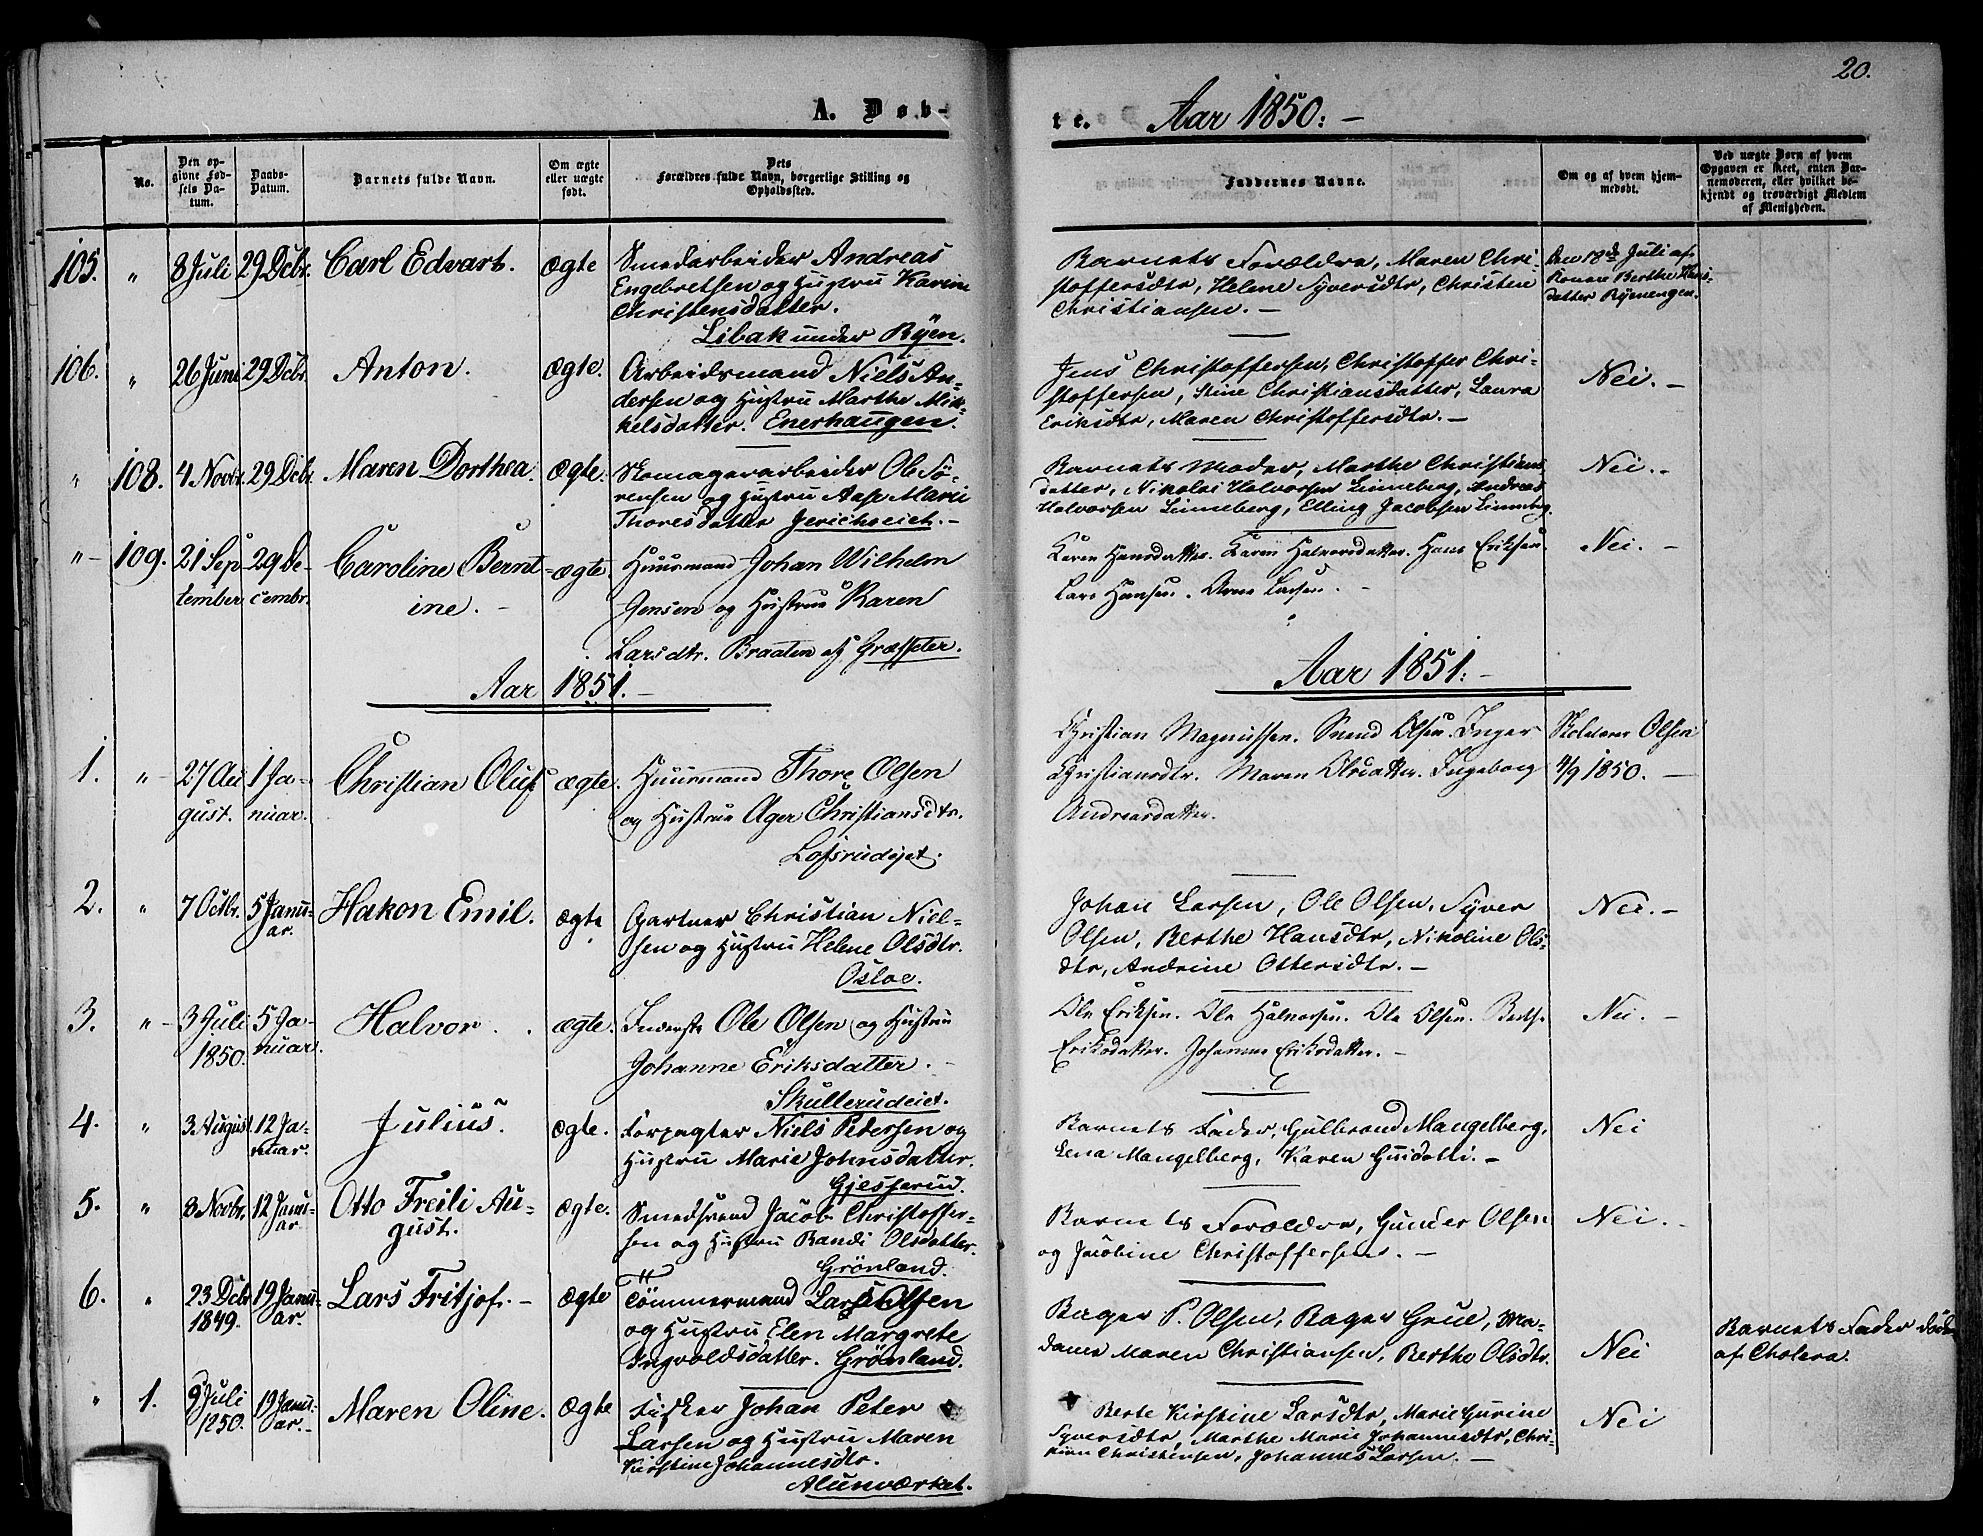 20.
A. Døb-
te.
Aar 1850.
No.
Den op-
givne Fød-
sels Da-
tum.
Daabs-
Datum.
Barnets fulde Navn.
Om ægte
eller uægte
født.
Dets
Forældres fulde Navn, borgerlige Stilling og
Opholdssted.
Faddernes Navne.
Om og af hvem hjem-
medøbt.
Ved uægte Børn af hvem
Opgaven er skeet, enten Bar-
nemoderen, eller hvilket be-
kjendt og troværdigt Medlem
af Menigheden.
105. " 8 Juli 29 Dcbr. Carl Edvart. ægte
Smedarbeider Andreas
Engebretsen og Hustru Karine
Christensdatter.
Libak under Ryen.
Barnets Forældre, Maren Chri-
stoffersdtr, Helene Syversdtr, Christen
Christiansen. —
Den 18de Juli af
Konen Berthe Hans-
datter Ryenengen.
106. " 26 Juni 29 Dcbr. Anton. ægte.
Arbeidsmand Niels An-
dersen og Hustru Marthe Mik-
kelsdatter. Enerhaugen.
Jens Christoffersen, Christoffer Chri-
stoffersen, Stine Christiansdatter, Laura
Eriksdtr, Maren Christoffersdtr. —
Nei. —
" 108. 4 Novbr. 29 Dcbr. Maren Dorthea. ægte.
Skomagerarbeider Ole Sö-
rensen og Hustru Aase Marie
Thoresdatter Jerichoeiet. —
Barnets Moder, Marthe Christians-
datter, Nikolai Halvorsen Linneberg, Andreas
Halvorsen Linneberg, Elling Jacobsen Linneberg.
Nei. —
" 109. 21 Sep- 29 De- Caroline Bernt- ægte.
tember cembr. ine. —
Huusmand Johan Wilhelm
Jensen og Hustrue Karen
Larsdtr. Braaten af Græsseter.
Karen Hansdatter. Karen Halvorsdatter. Hans Eriksen.
Lars Hansen. Arne Larsen. —
Nei. —
Aar 1851. —
Aar 1851. —
1. " 27 Au- 1 Ja- Christian Oluf ægte.
gust. nuar.
Huusmand Thore Olsen
og Hustrue Ager Christiansdtr.
Lofsrudejet.
Christian Magnussen. Svend Olsen. Inger
Christiansdtr. Maren Olsdatter. Ingeborg
Andreasdatter.
Skolelærer Olsen
4/9 1850. —
2. " 7 Octbr. 5 Janu- Hakon Emil. ægte
ar.
Gartner Christian Niel-
sen og Hustru Helene Olsdtr.
Osloe.
Johan Larsen, Ole Olsen, Syver
Olsen, Berthe Hansdtr, Nikoline Ols-
dtr, Andrine Ottersdtr. —
Nei. —
3. " 3 Juli 5 Ja- Halvor. ægte.
1850. nuar.
Inderste Ole Olsen og Hustrue
Johanne Eriksdatter. —
Skullerudeiet.
Ole Eriksen. Ole Halvorsen. Ole Olsen. Berthe
Eriksdatter. Johanne Eriksdatter. —
Nei. —
4. " 3 August 12 Ja- Julius. ægte.
nuar.
Forpagter Niels Petersen og
Hustru Marie Johnsdatter.
Gjesserud.
Barnets Fader, Gulbrand Mangelberg,
Lena Mangelberg, Karen Guidotti. —
Nei
5. " 8 Novbr. 12 Janu- Otto Freili Au- ægte.
ar. gust.
Smedsvend Jacob Christoffer-
sen og Hustru Randi Olsdatter.
Grönland.
Barnets Forældre, Gunder Olsen
og Jacobine Christoffersen. —
Nei. —
6. " 23 Dcbr 19 Janu- Lars Fritjof. — ægte
1849. ar.
Tömmermand Lars Olsen
og Hustru Elen Margrete
Ingvoldsdatter. Grönland.
Bager P. Olsen, Bager Grue, Ma-
dame Maren Christiansen, Berthe Olsdtr.
Nei
Barnets Fader döde
af Cholera.
" 1. 9 Juli 19 Janu- Maren Oline. ægte
1850. ar. —
Fisker Johan Peter
Larsen og Hustru Maren
Kirstine Johannesdtr.
Alunværket.
Berte Kirstine Larsdtr, Marie Gurine
Syversdtr, Marthe Marie Johannesdtr, Chri-
stian Christensen, Johannes Larsen. —
Nei